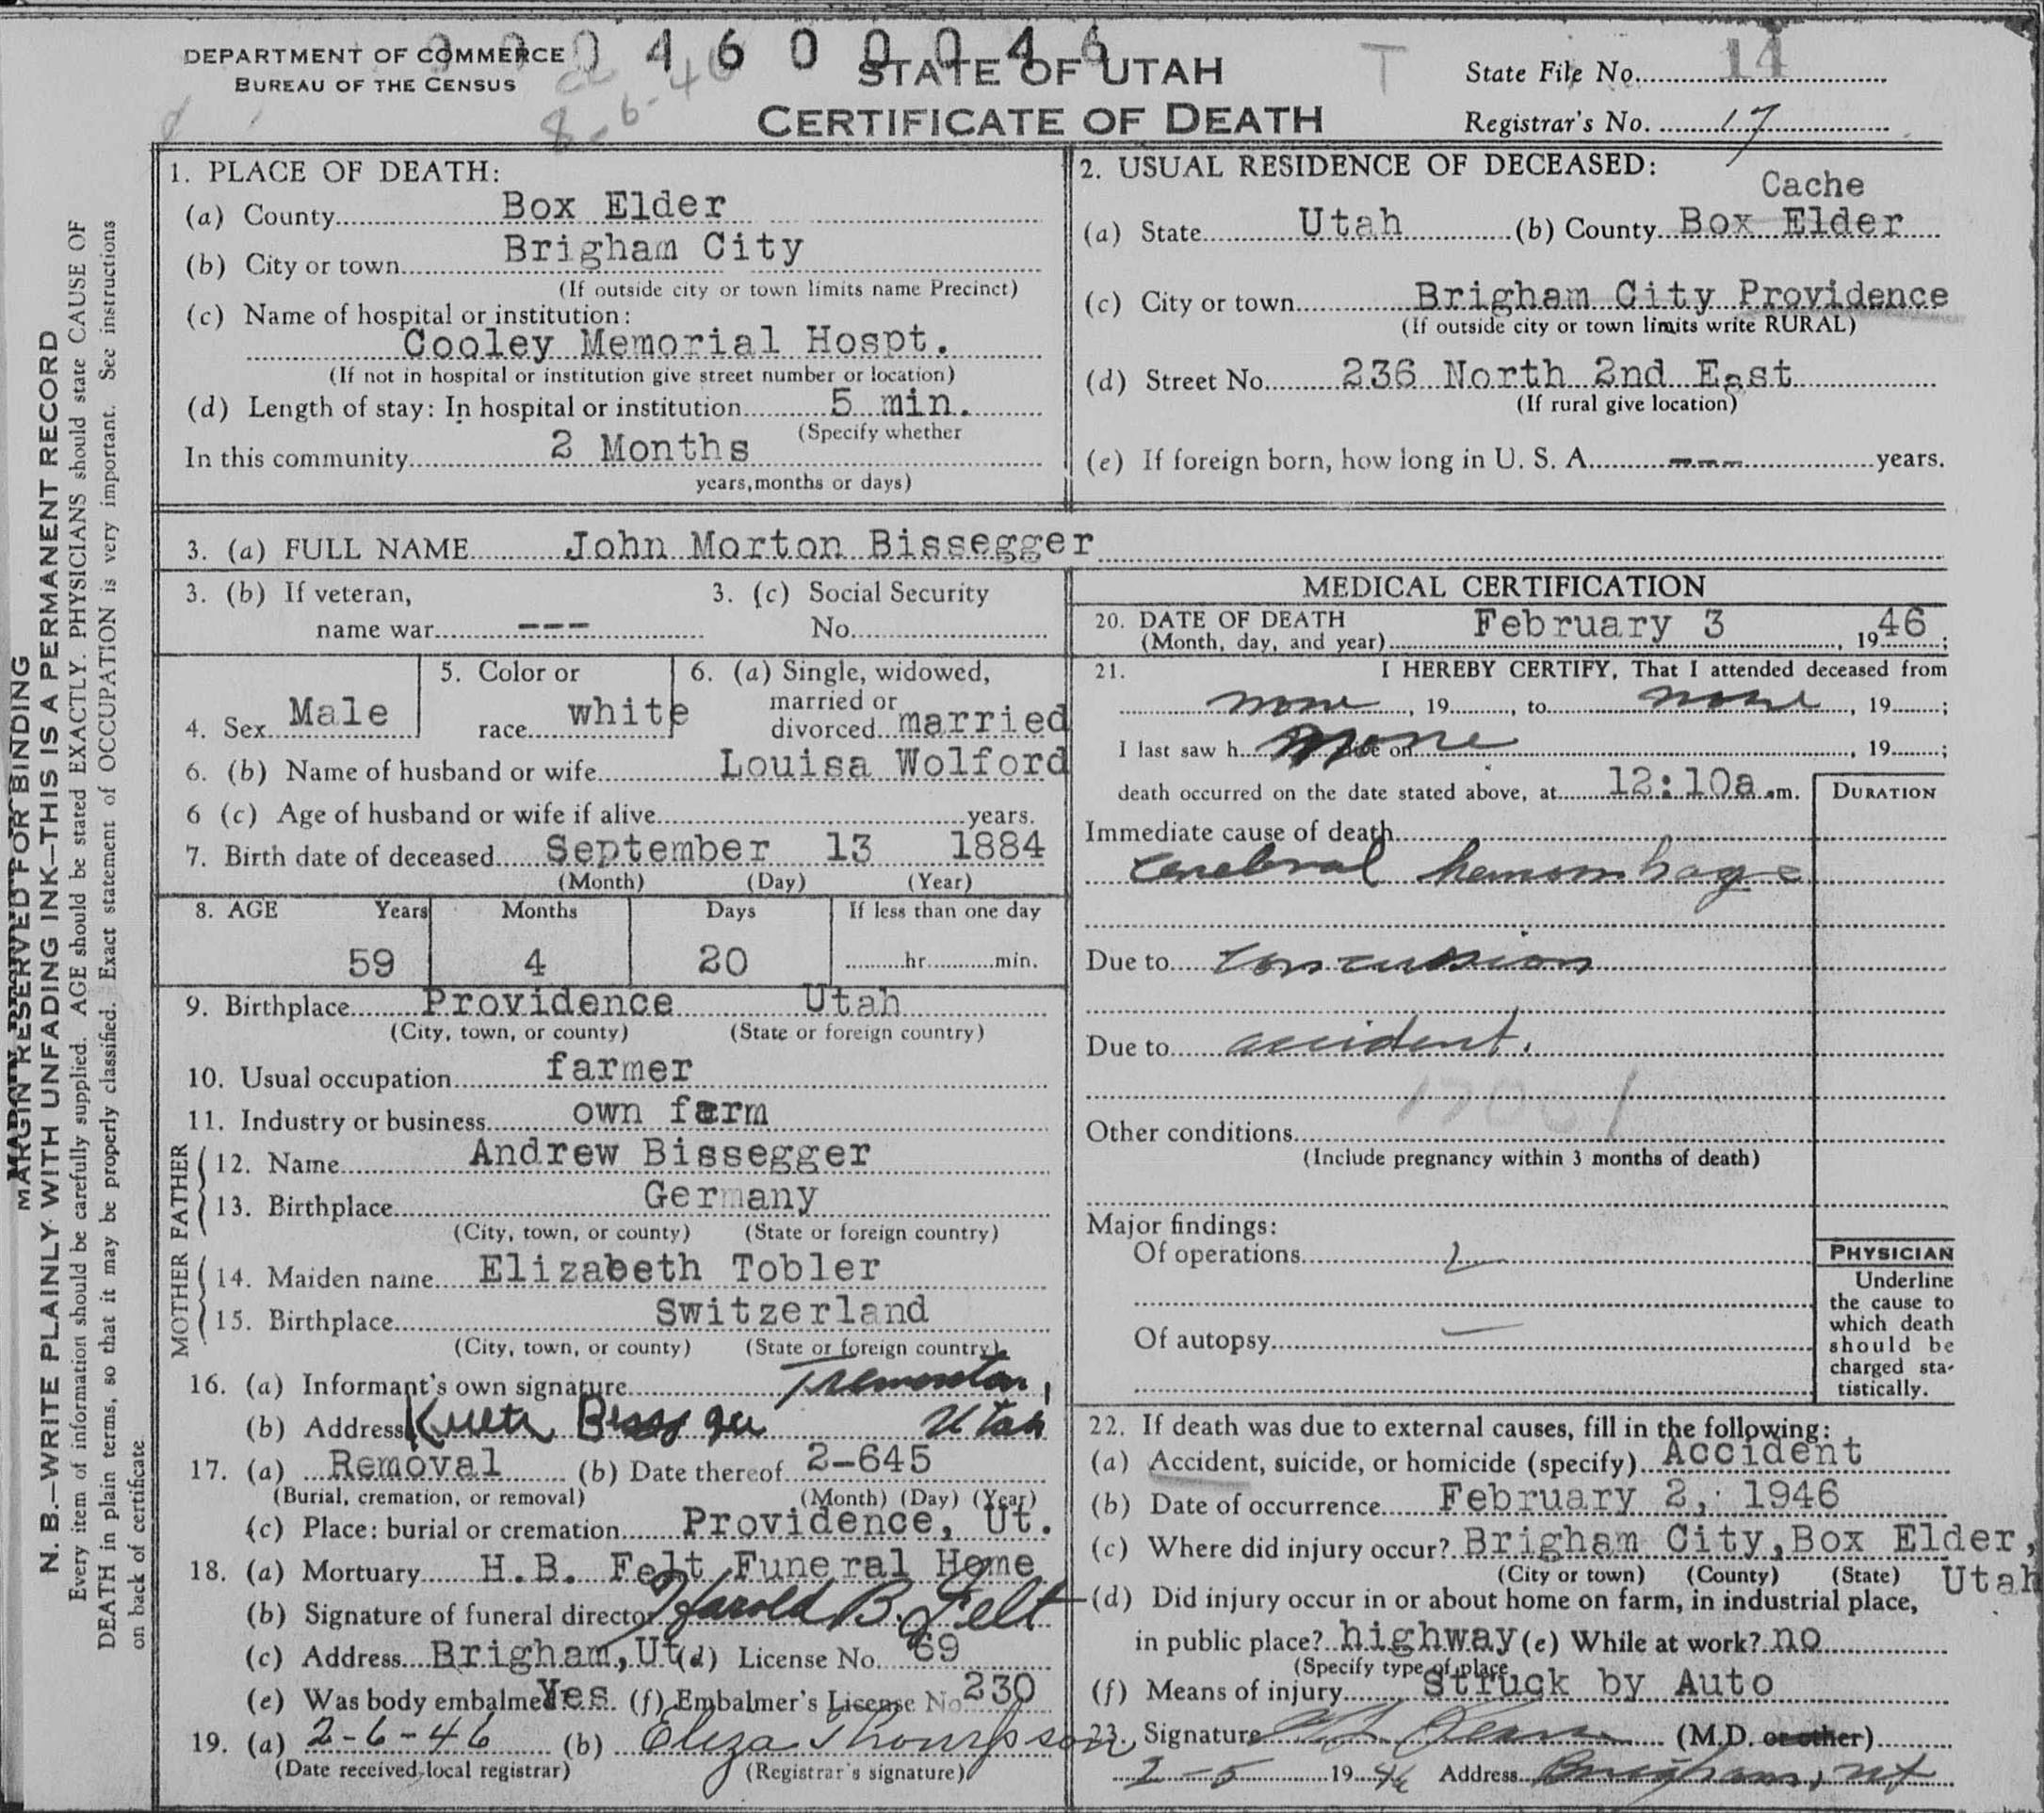 DEPARTMENT OF COMMERCE
BUREAU OF THE CENSUS
4 6 0 0 0 4 6
8-6-46
T
STATE OF UTAH
CERTIFICATE OF DEATH
State File No. 14
Registrar's No. 17
MARGIN RESERVED FOR BINDING
N. B.—WRITE PLAINLY WITH UNFADING INK—THIS IS A PERMANENT RECORD
Every item of information should be carefully supplied. AGE should be stated EXACTLY. PHYSICIANS should state CAUSE OF
DEATH in plain terms, so that it may be properly classified. Exact statement of OCCUPATION is very important. See instructions
on back of certificate
1. PLACE OF DEATH:
(a) County Box Elder
(b) City or town Brigham City
(If outside city or town limits name Precinct)
(c) Name of hospital or institution:
Cooley Memorial Hospt.
(If not in hospital or institution give street number or location)
(d) Length of stay: In hospital or institution 5 min.
(Specify whether
In this community 2 Months
years, months or days)
2. USUAL RESIDENCE OF DECEASED:
Cache
(a) State Utah (b) County Box Elder
(c) City or town Brigham City Providence
(If outside city or town limits write RURAL)
(d) Street No. 236 North 2nd East
(If rural give location)
(e) If foreign born, how long in U. S. A. --- years.
3. (a) FULL NAME John Morton Bissegger
3. (b) If veteran,
name war ---
3. (c) Social Security
No.
4. Sex Male
5. Color or
race white
6. (a) Single, widowed,
married or
divorced married
6. (b) Name of husband or wife Louisa Wolford
6 (c) Age of husband or wife if alive years.
7. Birth date of deceased September 13 1884
(Month) (Day) (Year)
8. AGE Years Months Days If less than one day
59 4 20 hr. min.
9. Birthplace Providence Utah
(City, town, or county) (State or foreign country)
10. Usual occupation farmer
11. Industry or business own farm
FATHER
12. Name Andrew Bissegger
13. Birthplace Germany
(City, town, or county) (State or foreign country)
MOTHER
14. Maiden name Elizabeth Tobler
15. Birthplace Switzerland
(City, town, or county) (State or foreign country)
16. (a) Informant's own signature Tremonton,
(b) Address Utah
17. (a) Removal (b) Date thereof 2-645
(Burial, cremation, or removal) (Month) (Day) (Year)
(c) Place: burial or cremation Providence, Ut.
18. (a) Mortuary H.B. Felt Funeral Home
(b) Signature of funeral director Harold B. Felt
(c) Address Brigham, Ut (d) License No. 69
(e) Was body embalmed Yes (f) Embalmer's License No 230
19. (a) 2-6-46 (b) Eliza Thompson
(Date received local registrar) (Registrar's signature)
MEDICAL CERTIFICATION
20. DATE OF DEATH
(Month, day, and year) February 3, 1946;
21. I HEREBY CERTIFY, That I attended deceased from
none, 19, to none, 19;
I last saw h none alive on, 19;
death occurred on the date stated above, at 12:10a.m.
DURATION
Immediate cause of death
cerebral hemorrhage
Due to concussion
Due to accident.
Other conditions
(Include pregnancy within 3 months of death)
Major findings:
Of operations
Of autopsy
PHYSICIAN
Underline
the cause to
which death
should be
charged sta-
tistically.
22. If death was due to external causes, fill in the following:
(a) Accident, suicide, or homicide (specify) Accident
(b) Date of occurrence February 2, 1946
(c) Where did injury occur? Brigham City, Box Elder,
(City or town) (County) (State) Utah
(d) Did injury occur in or about home on farm, in industrial place,
in public place? highway (e) While at work? no
(Specify type of place
(f) Means of injury Struck by Auto
23. Signature (M.D. or other)
2-5 1946 Address Brigham, Ut